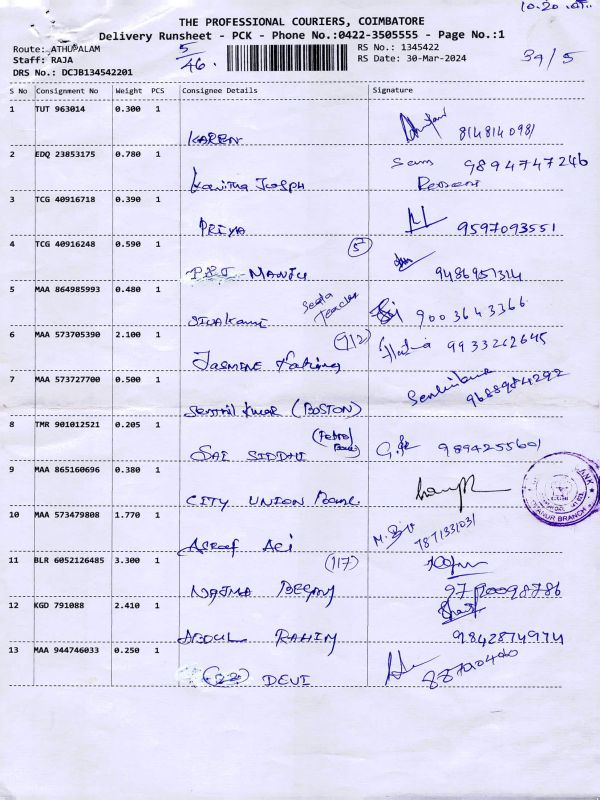 10.20
THE PROFESSIONAL COURIERS, COIMBATORE
Delivery Runsheet - PCK - Phone No.:0422-3505555 - Page No.:1
Route: ATHUPALAM
Staff: RAJA
DRS No.: DCJB134542201
5/46.
RS No.: 1345422
RS Date: 30-Mar-2024
39/5
S No Consignment No Weight PCS Consignee Details Signature
1 TUT 963014 0.300 1
KAREN 8148140981
2 EDQ 23853175 0.780 1
Kavitha Joseph Sam 9894747246
3 TCG 40916718 0.390 1
PRIYA 9597093551
4 TCG 40916248 0.590 1 (5)
MANJU 9486951314
5 MAA 864985993 0.480 1
SIVAKAMI Teacher 9003643366
6 MAA 573705390 2.100 1 (112)
JASMINE 9933262645
7 MAA 573727700 0.500 1
Senthil Kumar (BOSTON) 9688984292
8 TMR 901012521 0.205 1
SAI SIDDHI (Petrol Bunk) 9894255601
9 MAA 865160696 0.380 1
CITY UNION Bank
BRANCH
10 MAA 573479808 1.770 1
Asraf Ali 7871331031
11 BLR 6052126485 3.300 1 (117)
NAJMA BEGAM
12 KGD 791088 2.410 1
ABDUL RAHIM 9842874974
13 MAA 944746033 0.250 1
(22) DEVI